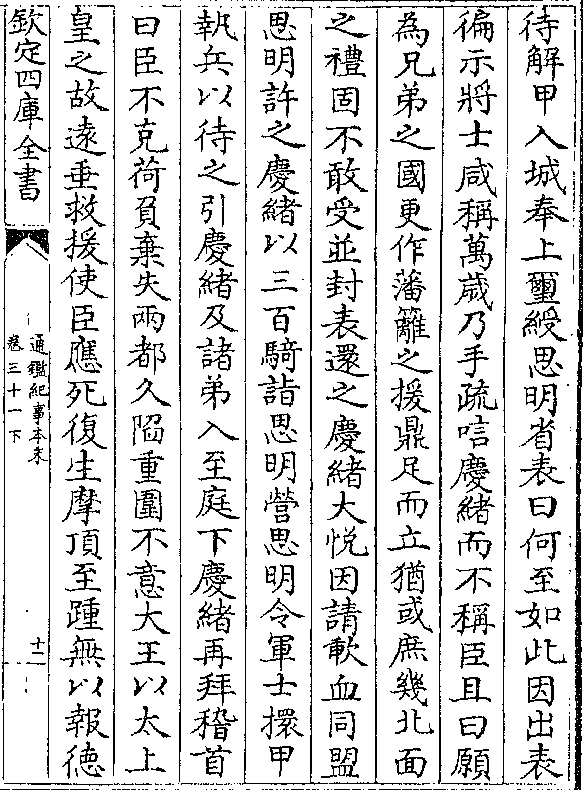 待解甲入城奉上璽綬思明省表曰何至如此因出表
徧示將士咸稱萬歳乃手疏唁慶緒而不稱臣且曰願
為兄弟之國更作藩籬之援鼎足而立猶或庶幾北面
之禮固不敢受並封表還之慶緒大悦因請歃血同盟
思明許之慶緒以三百騎詣思明營思明令軍士擐甲
執兵以待之引慶緒及諸弟入至庭下慶緒再拜稽首
曰臣不克荷負棄失兩都久䧟重圍不意大王以太上
皇之故遠垂救援使臣應死復生摩頂至踵無以報德
欽定四庫全書
通鑑紀事本末
卷三十一下
十二